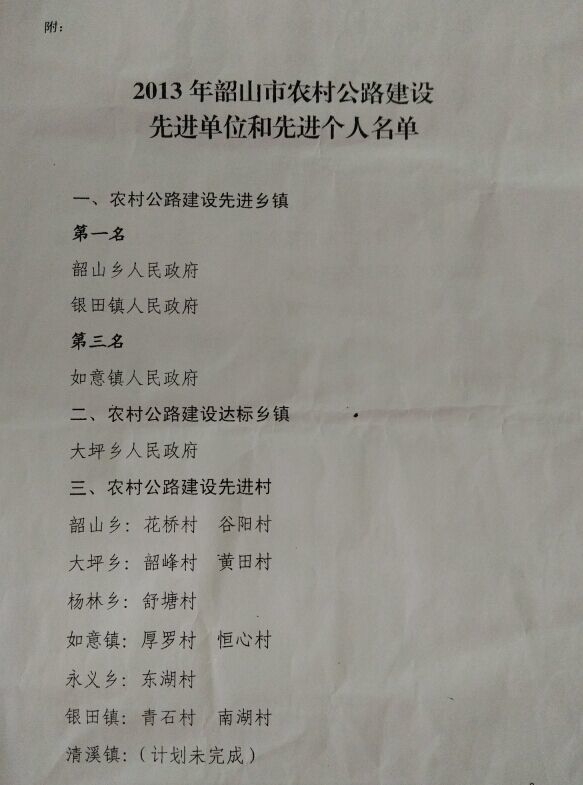 附：
2013 年韶山市农村公路建设
先进单位和先进个人名单
一、农村公路建设先进乡镇
第一名
韶山乡人民政府
银田镇人民政府
第三名
如意镇人民政府
二、农村公路建设达标乡镇
大坪乡人民政府
三、农村公路建设先进村
韶山乡：花桥村 谷阳村
大坪乡：韶峰村 黄田村
杨林乡：舒塘村
如意镇：厚罗村 恒心村
永义乡：东湖村
银田镇：青石村 南湖村
清溪镇：（计划未完成）